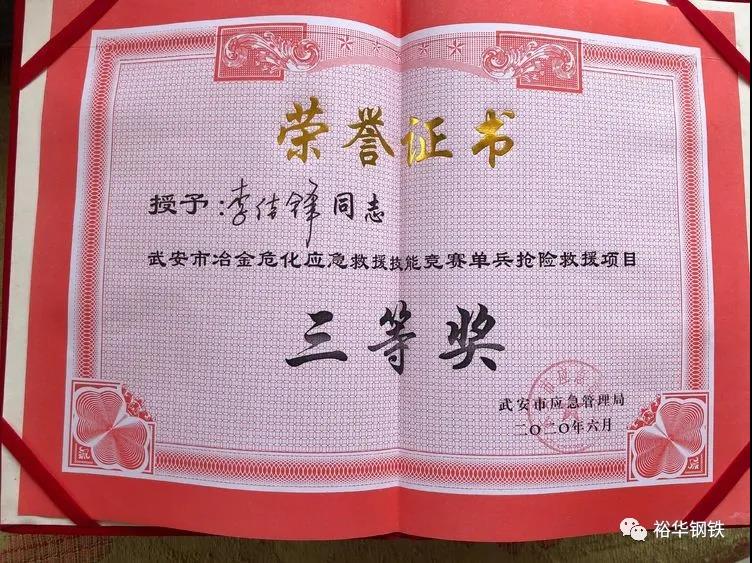 荣誉证书
授予:李佳锋同志
武安市冶金危化应急救援技能竞赛单兵抢险救援项目
三等奖
武安市应急管理局
二〇二〇年六月
裕华钢铁